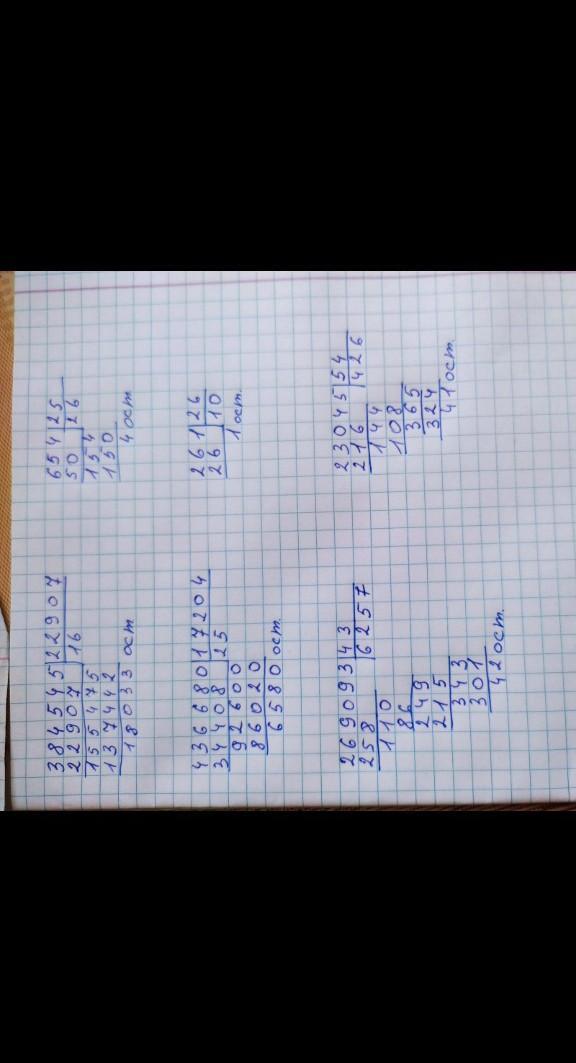 384545 22907
22907 16
155475
137442
18033 ост

654 25
50 26
154
150
4 ост

436680 17204
34408 25
92600
86020
6580 ост

261 26
26 10
1 ост.

269093 43
258 6257
110
86
249
215
343
301
42 ост.

23045 54
216 426
144
108
365
324
41 ост